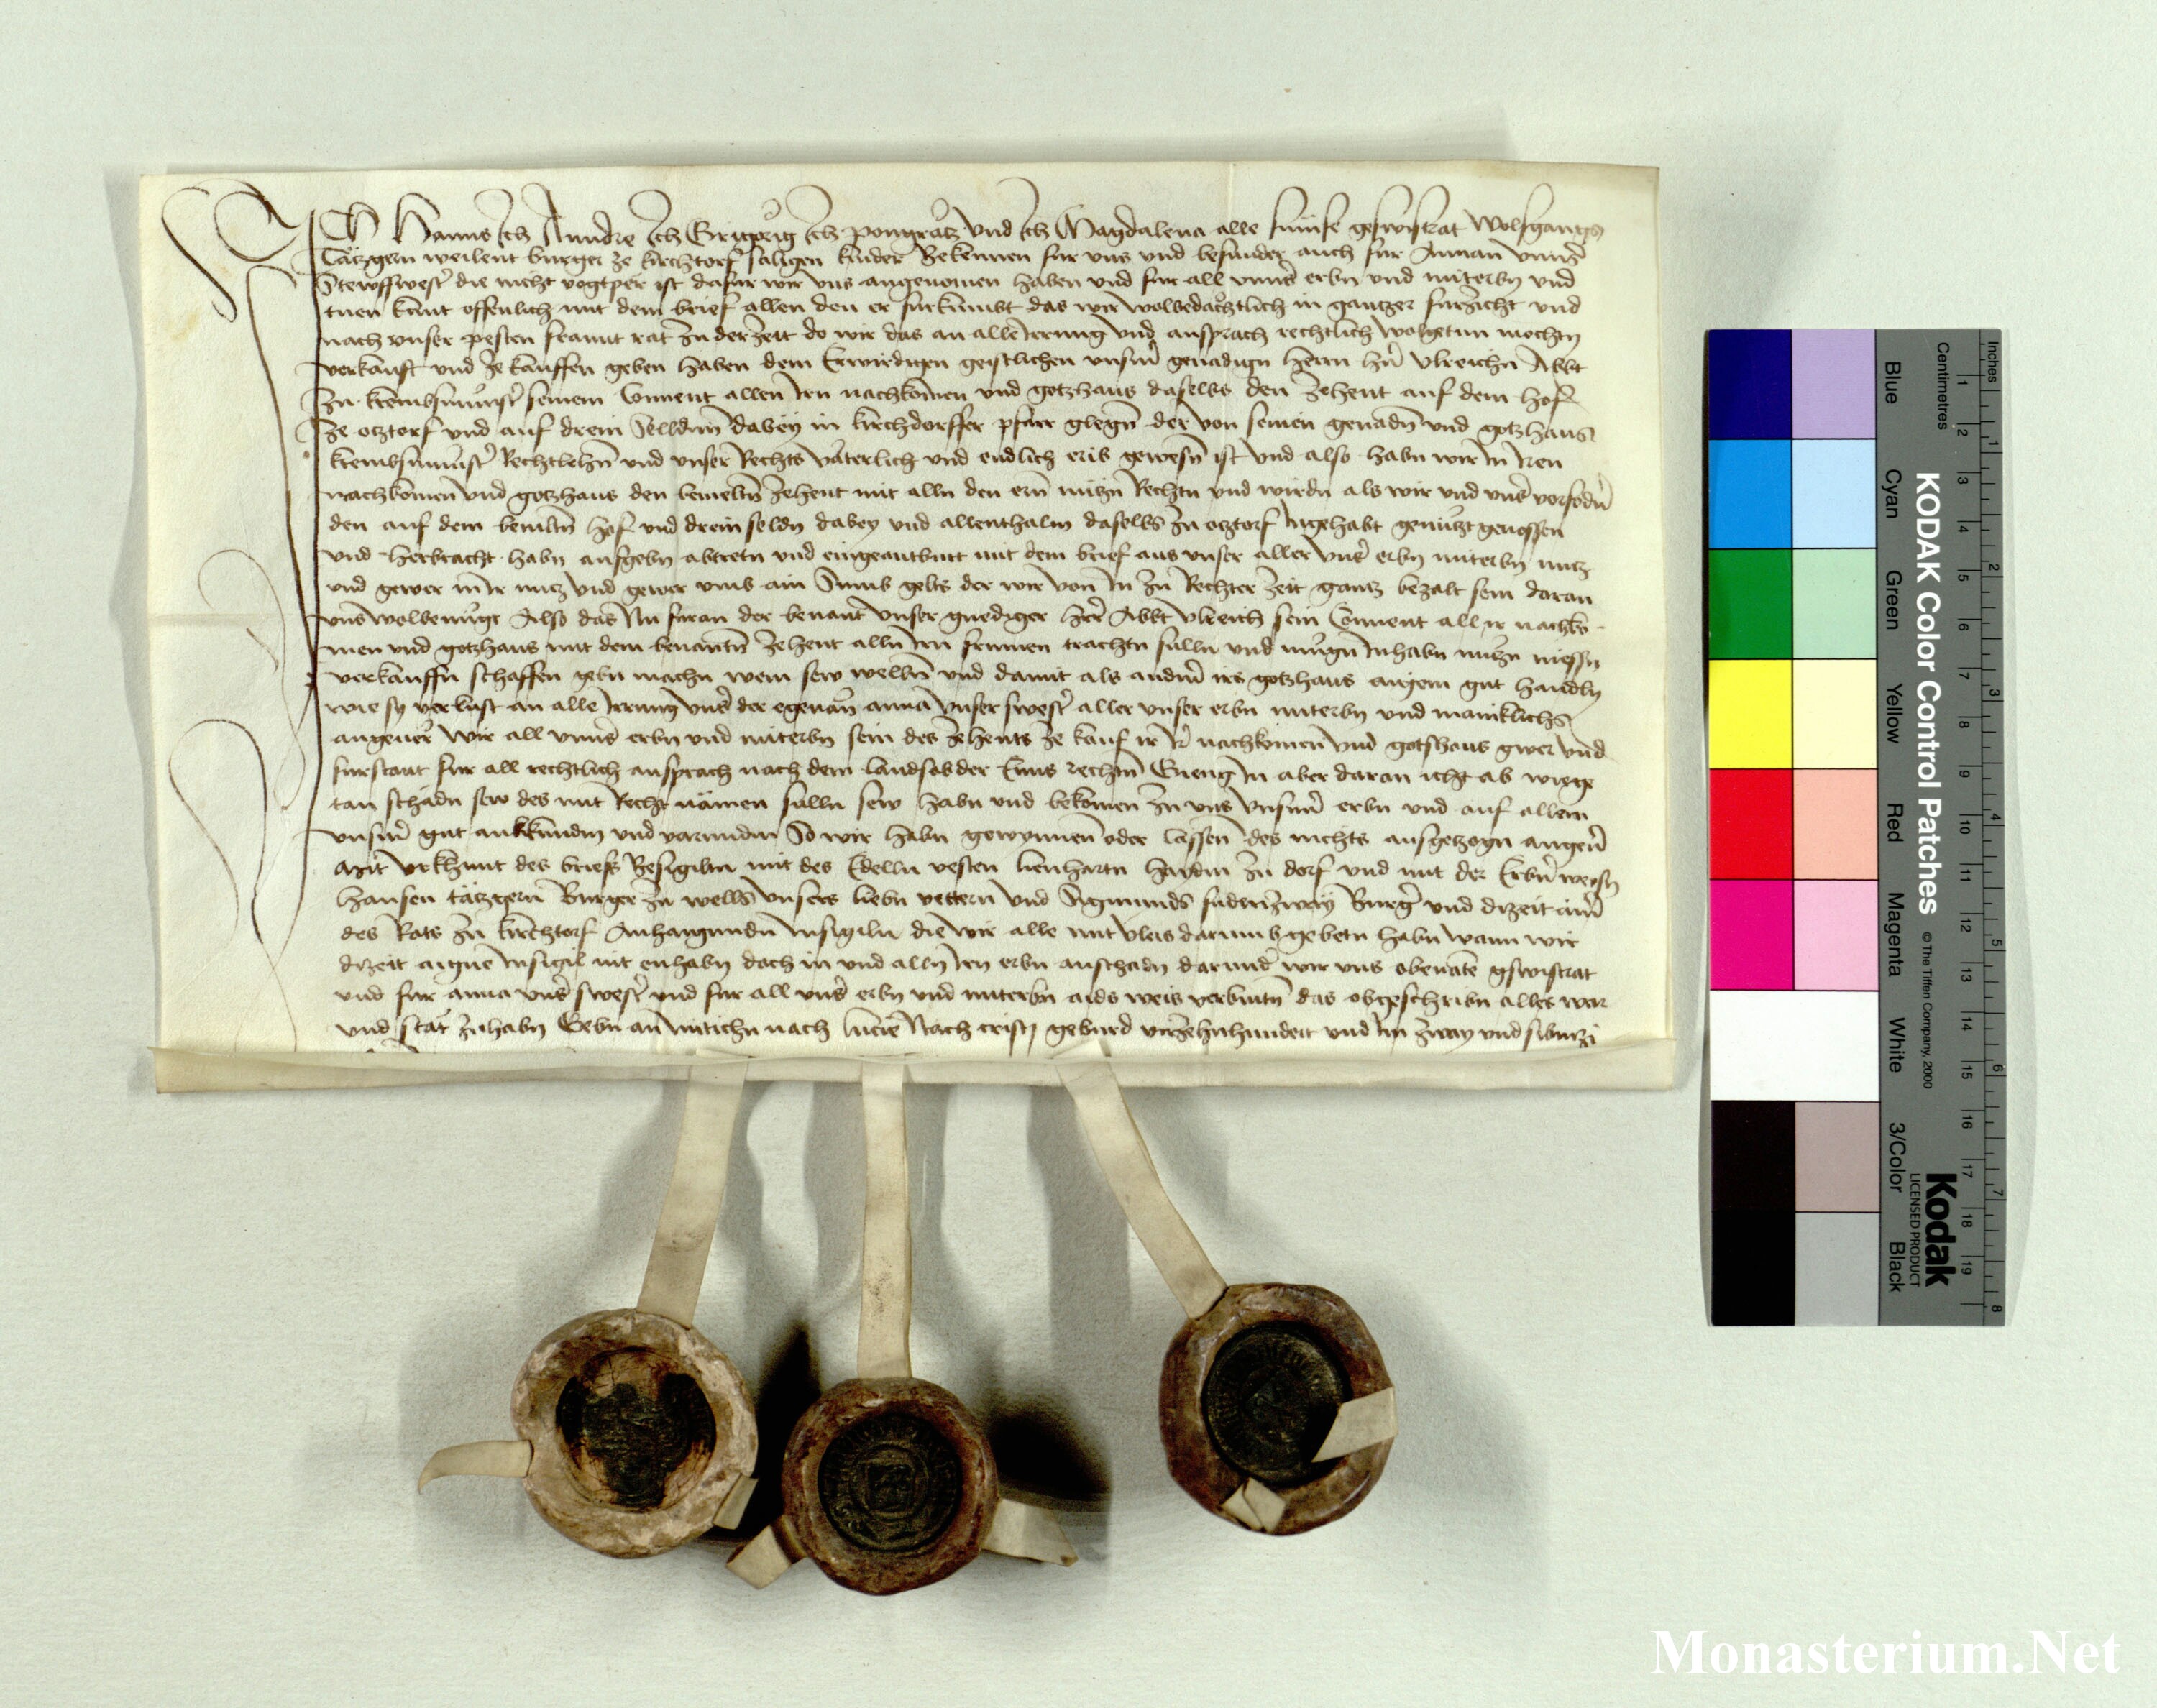 Ich Hanns Ich Anndre Ich Grigorig Ich pongratz Und Ich Magdalena alle funfe geswistrat Wolfgangs
Tätzgern weilent burger ze kirchtorf saligen kinder Bekennen fur uns und besunder auch fur Annan unnser
Stewffwester die nicht vogtper ist dafur wir uns angenomen haben und fur all unnser erbn und miterbn und
tuen kunt offenlich mit dem brief allen den er furkumbt das wir wolbedachtlich in gantzer furzicht und
nach unser pesten freunt rat zu der zeitt do wir das an alle Irrung und ansprach rechtlich wolgetun mochtn
verkauft und ze kauffen geben haben dem Erwirdigen geistlichen unserm genadign herrn hern Ulreichn Abbt
zu krembsmunster seinem Convent allen Irn nachkomen und gotzhaus daselbs den zehent auf dem hof
ze otztorf und auf drein Selldnn dabey in kirchdorffer pfarr glegn der von seinen genadn und gotzhaus
krembsmunster Rechtlehn und unser Rechts vaterlich und endlich erib gewesn ist und also habn wir In Iren
nachkomen und gotzhaus den bemeltn zehent mit alln den ern nutzn Rechtn und wirdn als wir und unser vorfodern
den auf dem bemeltn hof und drein seldn dabey und allenthalm daselbs zu otztorf Ingehabt genutzt genossen
und herbracht habn aufgebn abtretn und eingeantburt mit dem brief aus unser aller unser erbn miterbn nutz
und gewer in Ir nutz und gewer umb ain Summ gelts der wir von In zu Rechter zeit gantz bezalt sein daran
uns wolbenugt Also das Nu furan der benant unser gnediger herr Abbt Ulreich sein Convent all ir nachko-
men und gotzhaus mit dem benantn zehent alln irn frumen trachtn sulln und mugn Inhabn nutzn niessn
verkauffn schaffen gebn machn wem sew welln und damit als anderm irs gotzhaus aigem gut handln
wie sy verlust an alle Irrung unser der egenan anna unser swester aller unser erbn miterbn und maniklichs
angever Wir all unnser erbn und miterbn sein des zehents ze kauf ir Ir nachkomen und gotshaus gwer und
furstant fur all rechtlich ansprach nach dem landsob der Enns rechtn Gieng In aber daran icht ab wiege
tan schadn sew des mit Recht namen sulln sew habn und bekomen zu uns unserm erbn und auf allem
unserm gut ankundm und varundm So wir habn gewynnen oder lassen des nichts ausgetzogn angever
Mit Urkhunt des briefs Besigiltn mit des Edelln vesten lienhartn haydin zu dorf und mit der Erbern weysn
hansen tätzgern Burger zu wells unsers liebn vettern und Sigmunds Burger und dizeit
des Rats zu kirchtorf Anhangundn Insigiln die wir alle mit vleis darumb gebetn habn wann wir
dizeit aigne Insigil nit enhabn doch in und alln irn erbn anschadn darunder wir uns obenante gswistrat
und fur anna unser swester und fur all unser erbn und miterbn aids weis verbintn das obgeschribn alles war
und stat zuhabn Gebn an mitichn nach lucie Nach cristi geburd virzehnhundert und Im zway und sibenzi
Blue
Cyan
Green
Yellow
Red
Magenta
White
3/Color
Black
KODAK Color Control Patches
© The Tiffen Company, 2000
Kodak
LICENSED PRODUCT
Centimetres
Inches
1 2 3 4 5 6 7 8 9 10 11 12 13 14 15 16 17 18 19
1 2 3 4 5 6 7 8
Monasterium.Net